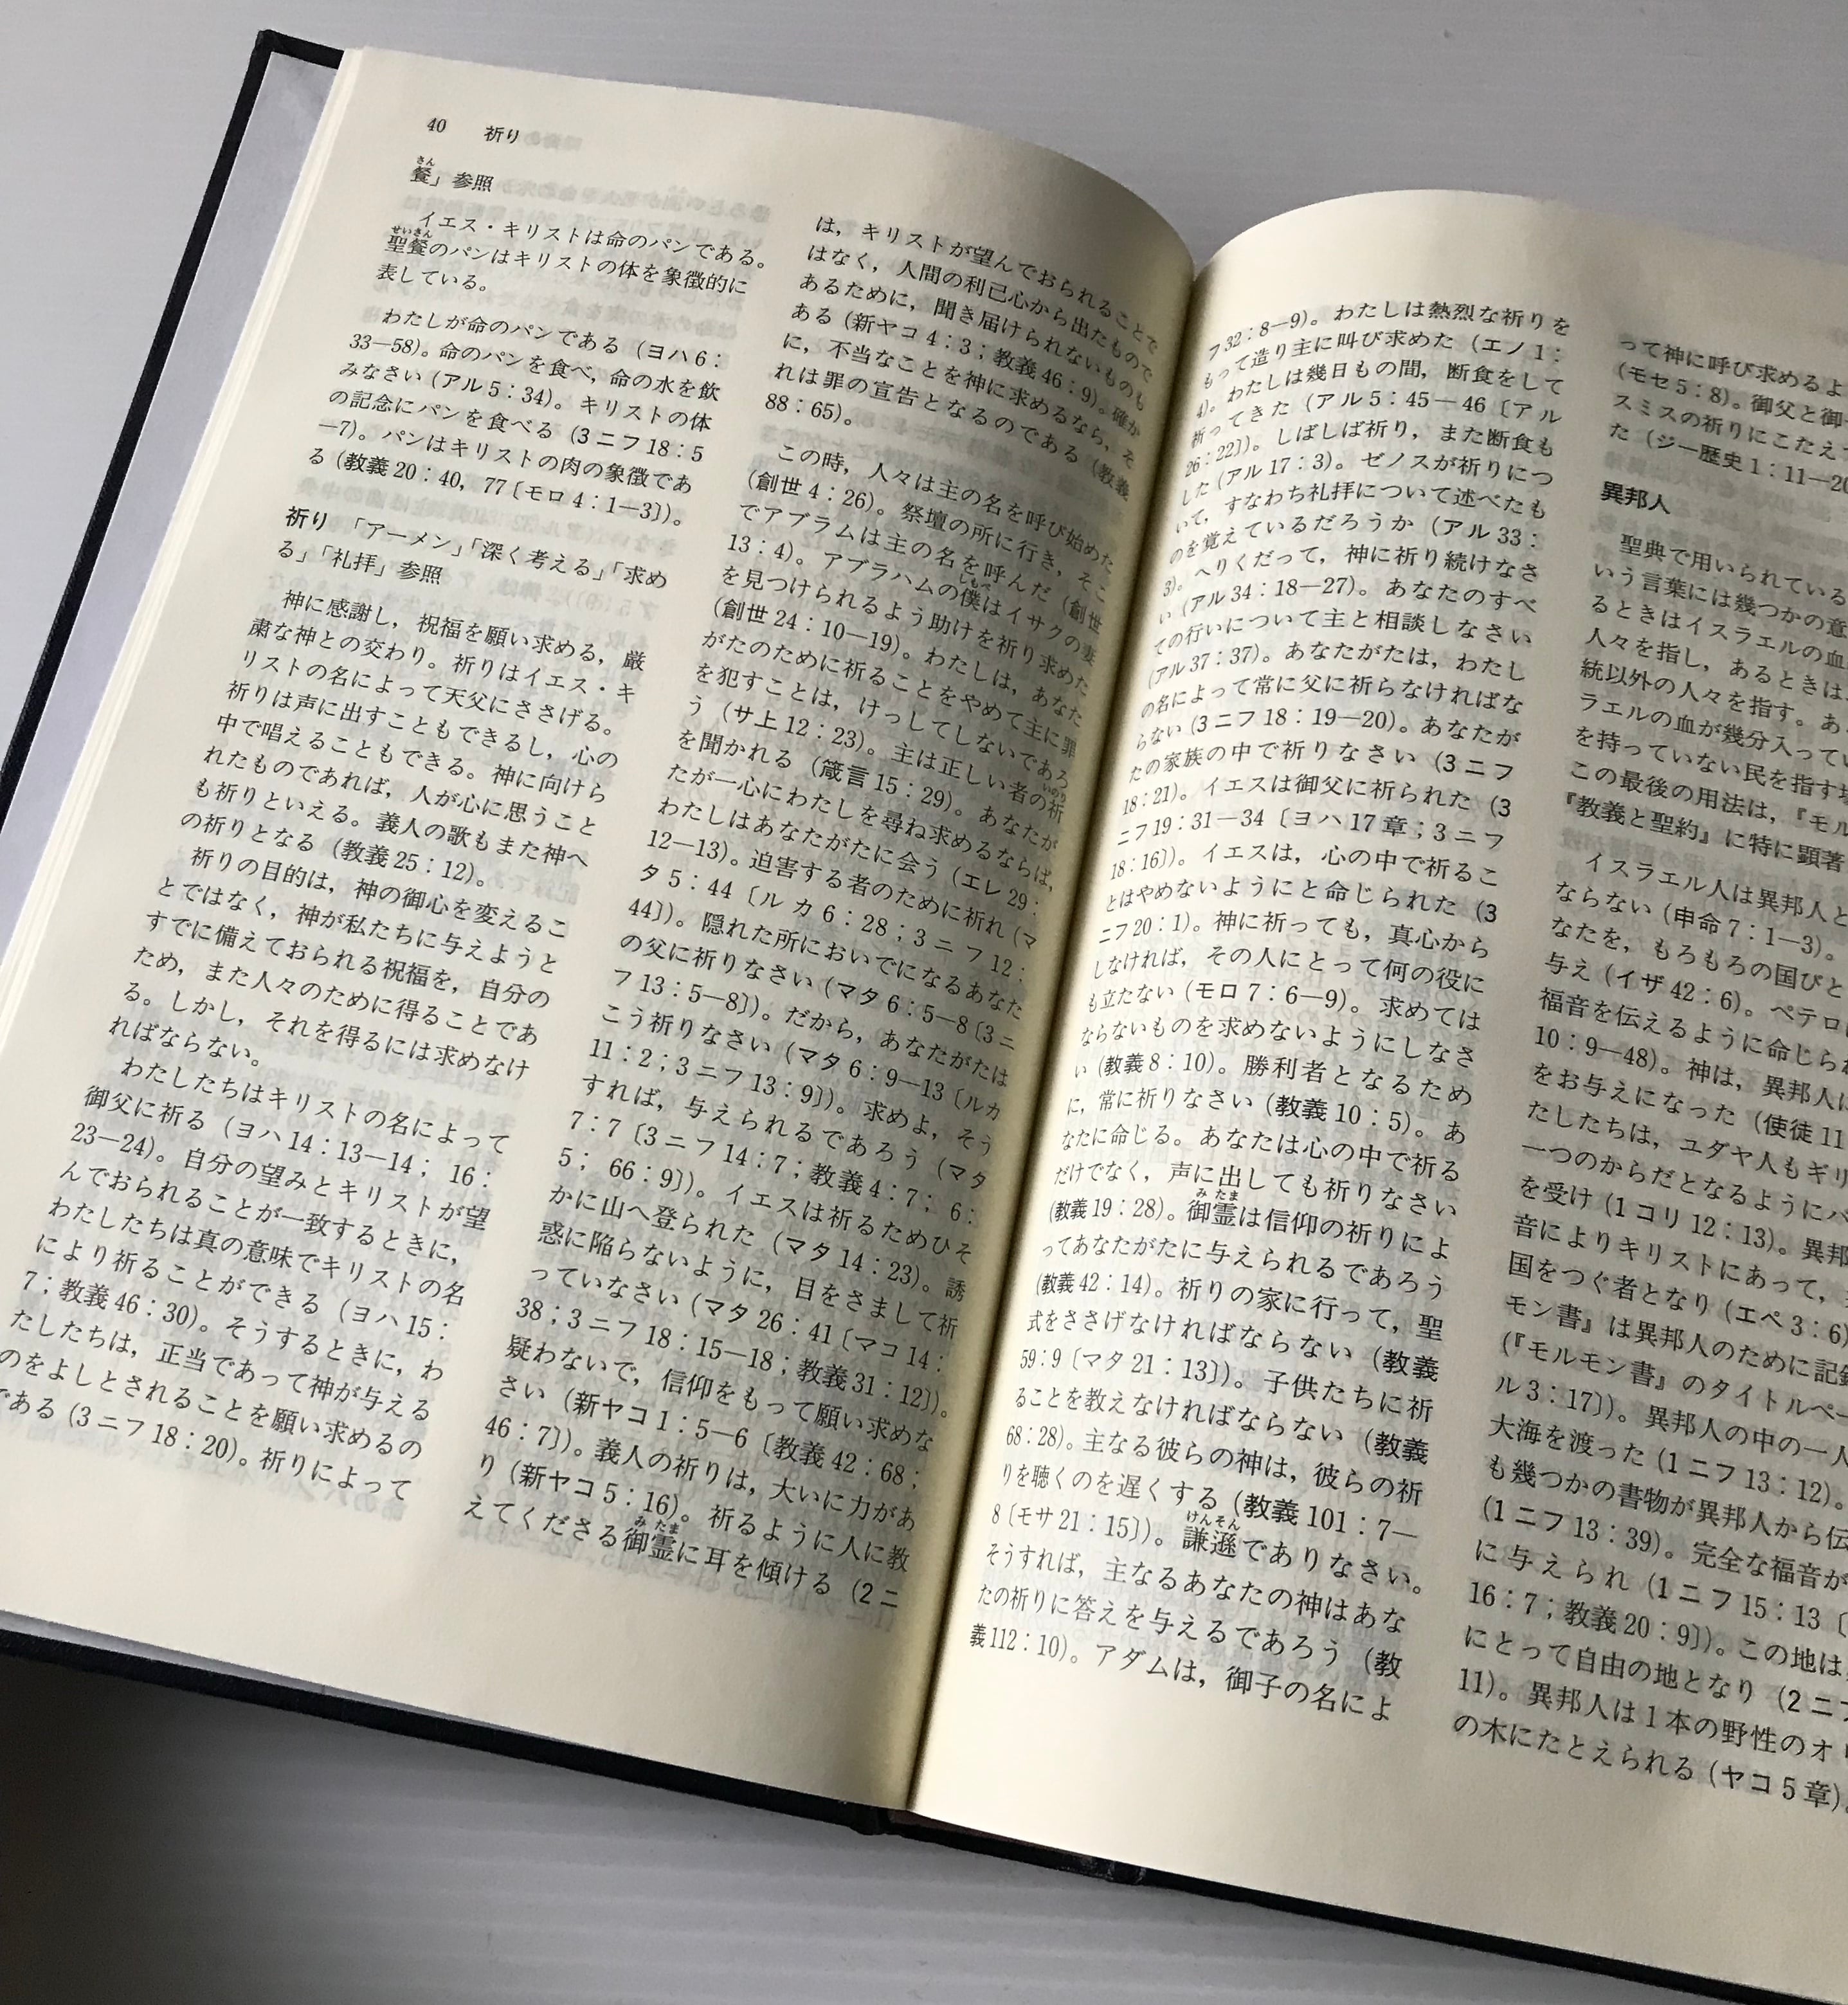 40 祈り
餐」参照
イエス・キリストは命のパンである。
聖餐のパンはキリストの体を象徴的に
表している。
わたしが命のパンである (ヨハ6：
33—58)。命のパンを食べ，命の水を飲
みなさい (アル5：34)。キリストの体
の記念にパンを食べる (3ニフ18：5
—7)。パンはキリストの肉の象徴であ
る (教義20：40，77〔モロ4：1—3〕)。
祈り 「アーメン」「深く考える」「求め
る」「礼拝」参照
神に感謝し，祝福を願い求める，厳
粛な神との交わり。祈りはイエス・キ
リストの名によって天父にささげる。
祈りは声に出すこともできるし，心の
中で唱えることもできる。神に向けら
れたものであれば，人が心に思うこと
も祈りといえる。義人の歌もまた神へ
の祈りとなる (教義25：12)。
祈りの目的は，神の御心を変えるこ
とではなく，神が私たちに与えようと
すでに備えておられる祝福を，自分の
ため，また人々のために得ることであ
る。しかし，それを得るには求めなけ
ればならない。
わたしたちはキリストの名によって
御父に祈る (ヨハ14：13—14；16：
23—24)。自分の望みとキリストが望
んでおられることが一致するときに，
わたしたちは真の意味でキリストの名
により祈ることができる (ヨハ15：
7；教義46：30)。そうするときに，わ
たしたちは，正当であって神が与える
のをよしとされることを願い求めるの
である (3ニフ18：20)。祈りによって
は，キリストが望んでおられることで
はなく，人間の利己心から出たもので
あるために，聞き届けられないものも
ある (新ヤコ4：3；教義46：9)。確か
に，不当なことを神に求めるなら，そ
れは罪の宣告となるのである (教義
88：65)。
この時，人々は主の名を呼び始めた
(創世4：26)。祭壇の所に行き，そこ
でアブラムは主の名を呼んだ (創世
13：4)。アブラハムの僕はイサクの妻
を見つけられるよう助けを祈り求めた
(創世24：10—19)。わたしは，あなた
がたのために祈ることをやめて主に罪
を犯すことは，けっしてしないであろ
う (サ上12：23)。主は正しい者の祈
を聞かれる (箴言15：29)。あなたが
たが一心にわたしを尋ね求めるならば，
わたしはあなたがたに会う (エレ29：
12—13)。迫害する者のために祈れ (マ
タ5：44〔ルカ6：28；3ニフ12：
44〕)。隠れた所においでになるあなた
の父に祈りなさい (マタ6：5—8〔3ニ
フ13：5—8〕)。だから，あなたがたは
こう祈りなさい (マタ6：9—13〔ルカ
11：2；3ニフ13：9〕)。求めよ，そう
すれば，与えられるであろう (マタ
7：7〔3ニフ14：7；教義4：7；6：
5；66：9〕)。イエスは祈るためひそ
かに山へ登られた (マタ14：23)。誘
惑に陥らないように，目をさまして祈
っていなさい (マタ26：41〔マコ14：
38；3ニフ18：15—18；教義31：12〕)。
疑わないで，信仰をもって願い求めな
さい (新ヤコ1：5—6〔教義42：68；
46：7〕)。義人の祈りは，大いに力があ
り (新ヤコ5：16)。祈るように人に教
えてくださる御霊に耳を傾ける (2ニ
フ32：8—9)。わたしは熱烈な祈りを
もって造り主に叫び求めた (エノ1：
4)。わたしは幾日もの間，断食をして
祈ってきた (アル5：45—46〔アル
26：22〕)。しばしば祈り，また断食も
した (アル17：3)。ゼノスが祈りにつ
いて，すなわち礼拝について述べたも
のを覚えているだろうか (アル33：
3)。へりくだって，神に祈り続けなさ
い (アル34：18—27)。あなたのすべ
ての行いについて主と相談しなさい
(アル37：37)。あなたがたは，わたし
の名によって常に父に祈らなければな
らない (3ニフ18：19—20)。あなたが
たの家族の中で祈りなさい (3ニフ
18：21)。イエスは御父に祈られた (3
ニフ19：31—34〔ヨハ17章；3ニフ
18：16〕)。イエスは，心の中で祈るこ
とはやめないようにと命じられた (3
ニフ20：1)。神に祈っても，真心から
しなければ，その人にとって何の役に
も立たない (モロ7：6—9)。求めては
ならないものを求めないようにしなさ
い (教義8：10)。勝利者となるため
に，常に祈りなさい (教義10：5)。あ
なたに命じる。あなたは心の中で祈る
だけでなく，声に出しても祈りなさい
(教義19：28)。御霊は信仰の祈りによ
ってあなたがたに与えられるであろう
(教義42：14)。祈りの家に行って，聖
式をささげなければならない (教義
59：9〔マタ21：13〕)。子供たちに祈
ることを教えなければならない (教義
68：28)。主なる彼らの神は，彼らの祈
りを聴くのを遅くする (教義101：7—
8〔モサ21：15〕)。謙遜でありなさい。
そうすれば，主なるあなたの神はあな
たの祈りに答えを与えるであろう (教
義112：10)。アダムは，御子の名によ
って神に呼び求めるよ
(モセ5：8)。御父と御
スミスの祈りにこたえ
た (ジー歴史1：11—20
異邦人
聖典で用いられている
いう言葉には幾つかの意
るときはイスラエルの血
人々を指し，あるときは
統以外の人々を指す。あ
ラエルの血が幾分入ってい
を持っていない民を指す
この最後の用法は，『モル
『教義と聖約』に特に顕著
イスラエル人は異邦人と
ならない (申命7：1—3)。
なたを，もろもろの国びと
与え (イザ42：6)。ペテロ
福音を伝えるように命じられ
10：9—48)。神は，異邦人に
をお与えになった (使徒11
たしたちは，ユダヤ人もギリ
一つのからだとなるようにバ
を受け (1コリ12：13)。異邦
音によりキリストにあって，
国をつぐ者となり (エペ3：6)
モン書』は異邦人のために記録
(『モルモン書』のタイトルペー
ル3：17〕)。異邦人の中の一人
大海を渡った (1ニフ13：12)。
も幾つかの書物が異邦人から伝
(1ニフ13：39)。完全な福音が
に与えられ (1ニフ15：13〔
16：7；教義20：9〕)。この地は
にとって自由の地となり (2ニフ
11)。異邦人は1本の野性のオリ
の木にたとえられる (ヤコ5章)。